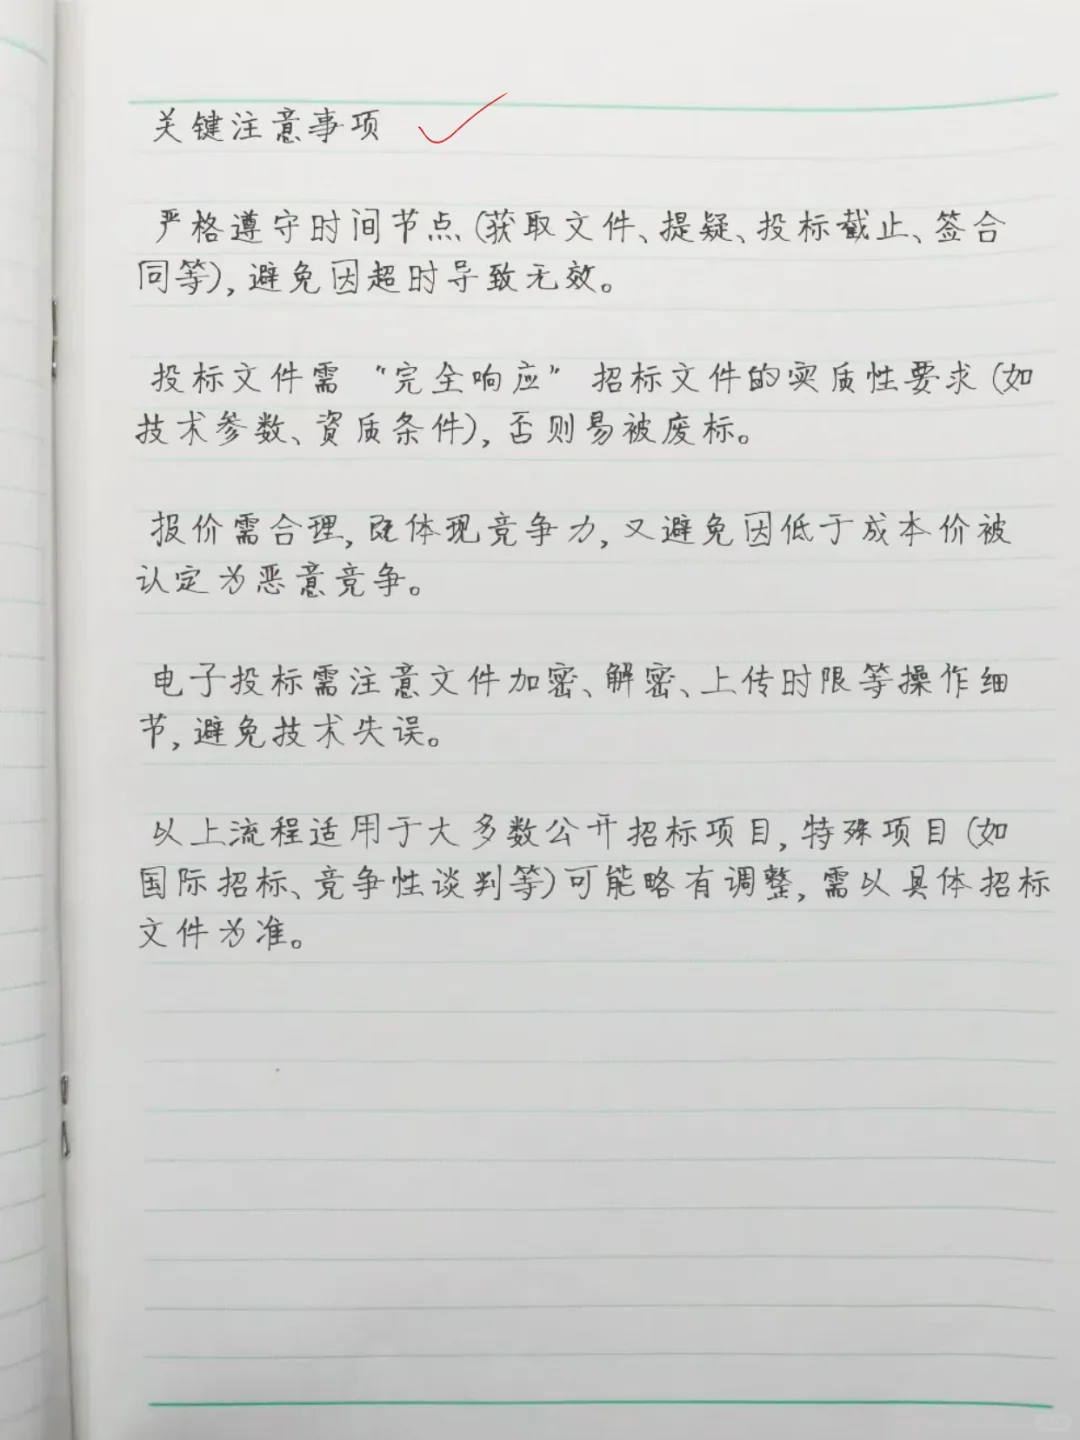 关键注意事项
严格遵守时间节点(获取文件、提疑、投标截止、签合
同等),避免因超时导致无效。
投标文件需“完全响应”招标文件的实质性要求(如
技术参数、资质条件),否则易被废标。
报价需合理,既体现竞争力,又避免因低于成本价被
认定为恶意竞争。
电子投标需注意文件加密、解密、上传时限等操作细
节,避免技术失误。
以上流程适用于大多数公开招标项目,特殊项目(如
国际招标、竞争性谈判等)可能略有调整,需以具体招标
文件为准。